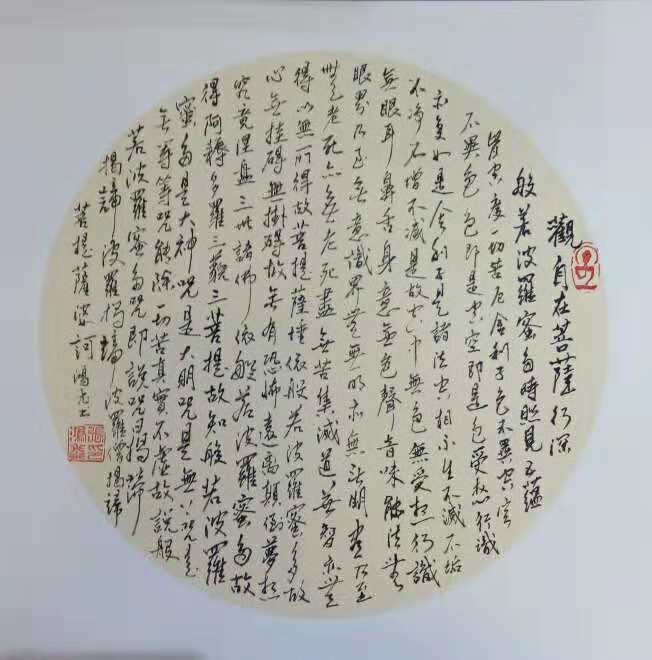 觀自在菩薩行深
般若波羅蜜多時照見五蘊
皆空度一切苦厄舍利子色不異空空
不異色色即是空空即是色受想行識
亦復如是舍利子是諸法空相不生不滅不垢
不淨不增不減是故空中無色無受想行識
無眼耳鼻舌身意無色聲香味觸法無
眼界乃至無意識界無無明亦無無明盡乃至
無老死亦無老死盡無苦集滅道無智亦無
得以無所得故菩提薩埵依般若波羅蜜多故
心無挂礙無掛礙故無有恐怖遠離顛倒夢想
究竟涅槃三世諸佛依般若波羅蜜多故
得阿耨多羅三藐三菩提故知般若波羅
蜜多是大神咒是大明咒是無上咒是
無等等咒能除一切苦真實不虛故說般
若波羅蜜多咒即說咒曰揭諦
揭諦波羅揭諦波羅僧揭諦
菩提薩婆訶